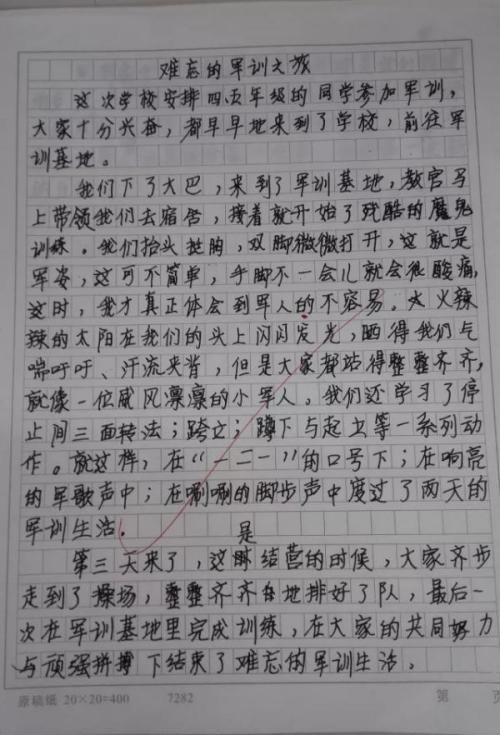 难忘的军训之旅
这次学校安排四、五年级的同学参加军训，
大家十分兴奋，都早早地来到了学校，前往军
训基地。
我们下了大巴，来到了军训基地，教官马
上带领我们去宿舍，接着就开始了残酷的魔鬼
训练。我们抬头挺胸，双脚微微打开，这就是
军姿，这可不简单，手脚不一会儿就会很酸痛，
这时，我才真正体会到军人的不容易。火辣
辣的太阳在我们的头上闪闪发光，晒得我们气
喘吁吁、汗流夹背，但是大家都站得整整齐齐，
就像一位威风凛凛的小军人，我们还学习了停
止间三面转法；跨立；蹲下与起立等一系列动
作。就这样，在“一二一”的口号下；在响亮
的军歌声中；在唰唰的脚步声中度过了两天的
军训生活。
第三天来了，这是结营的时候，大家齐步
走到了操场，整整齐齐地排好了队，最后一
次在军训基地里完成训练，在大家的共同努力
与顽强拼搏下结束了难忘的军训生活。
原稿纸 20×20=400 7282 第 页